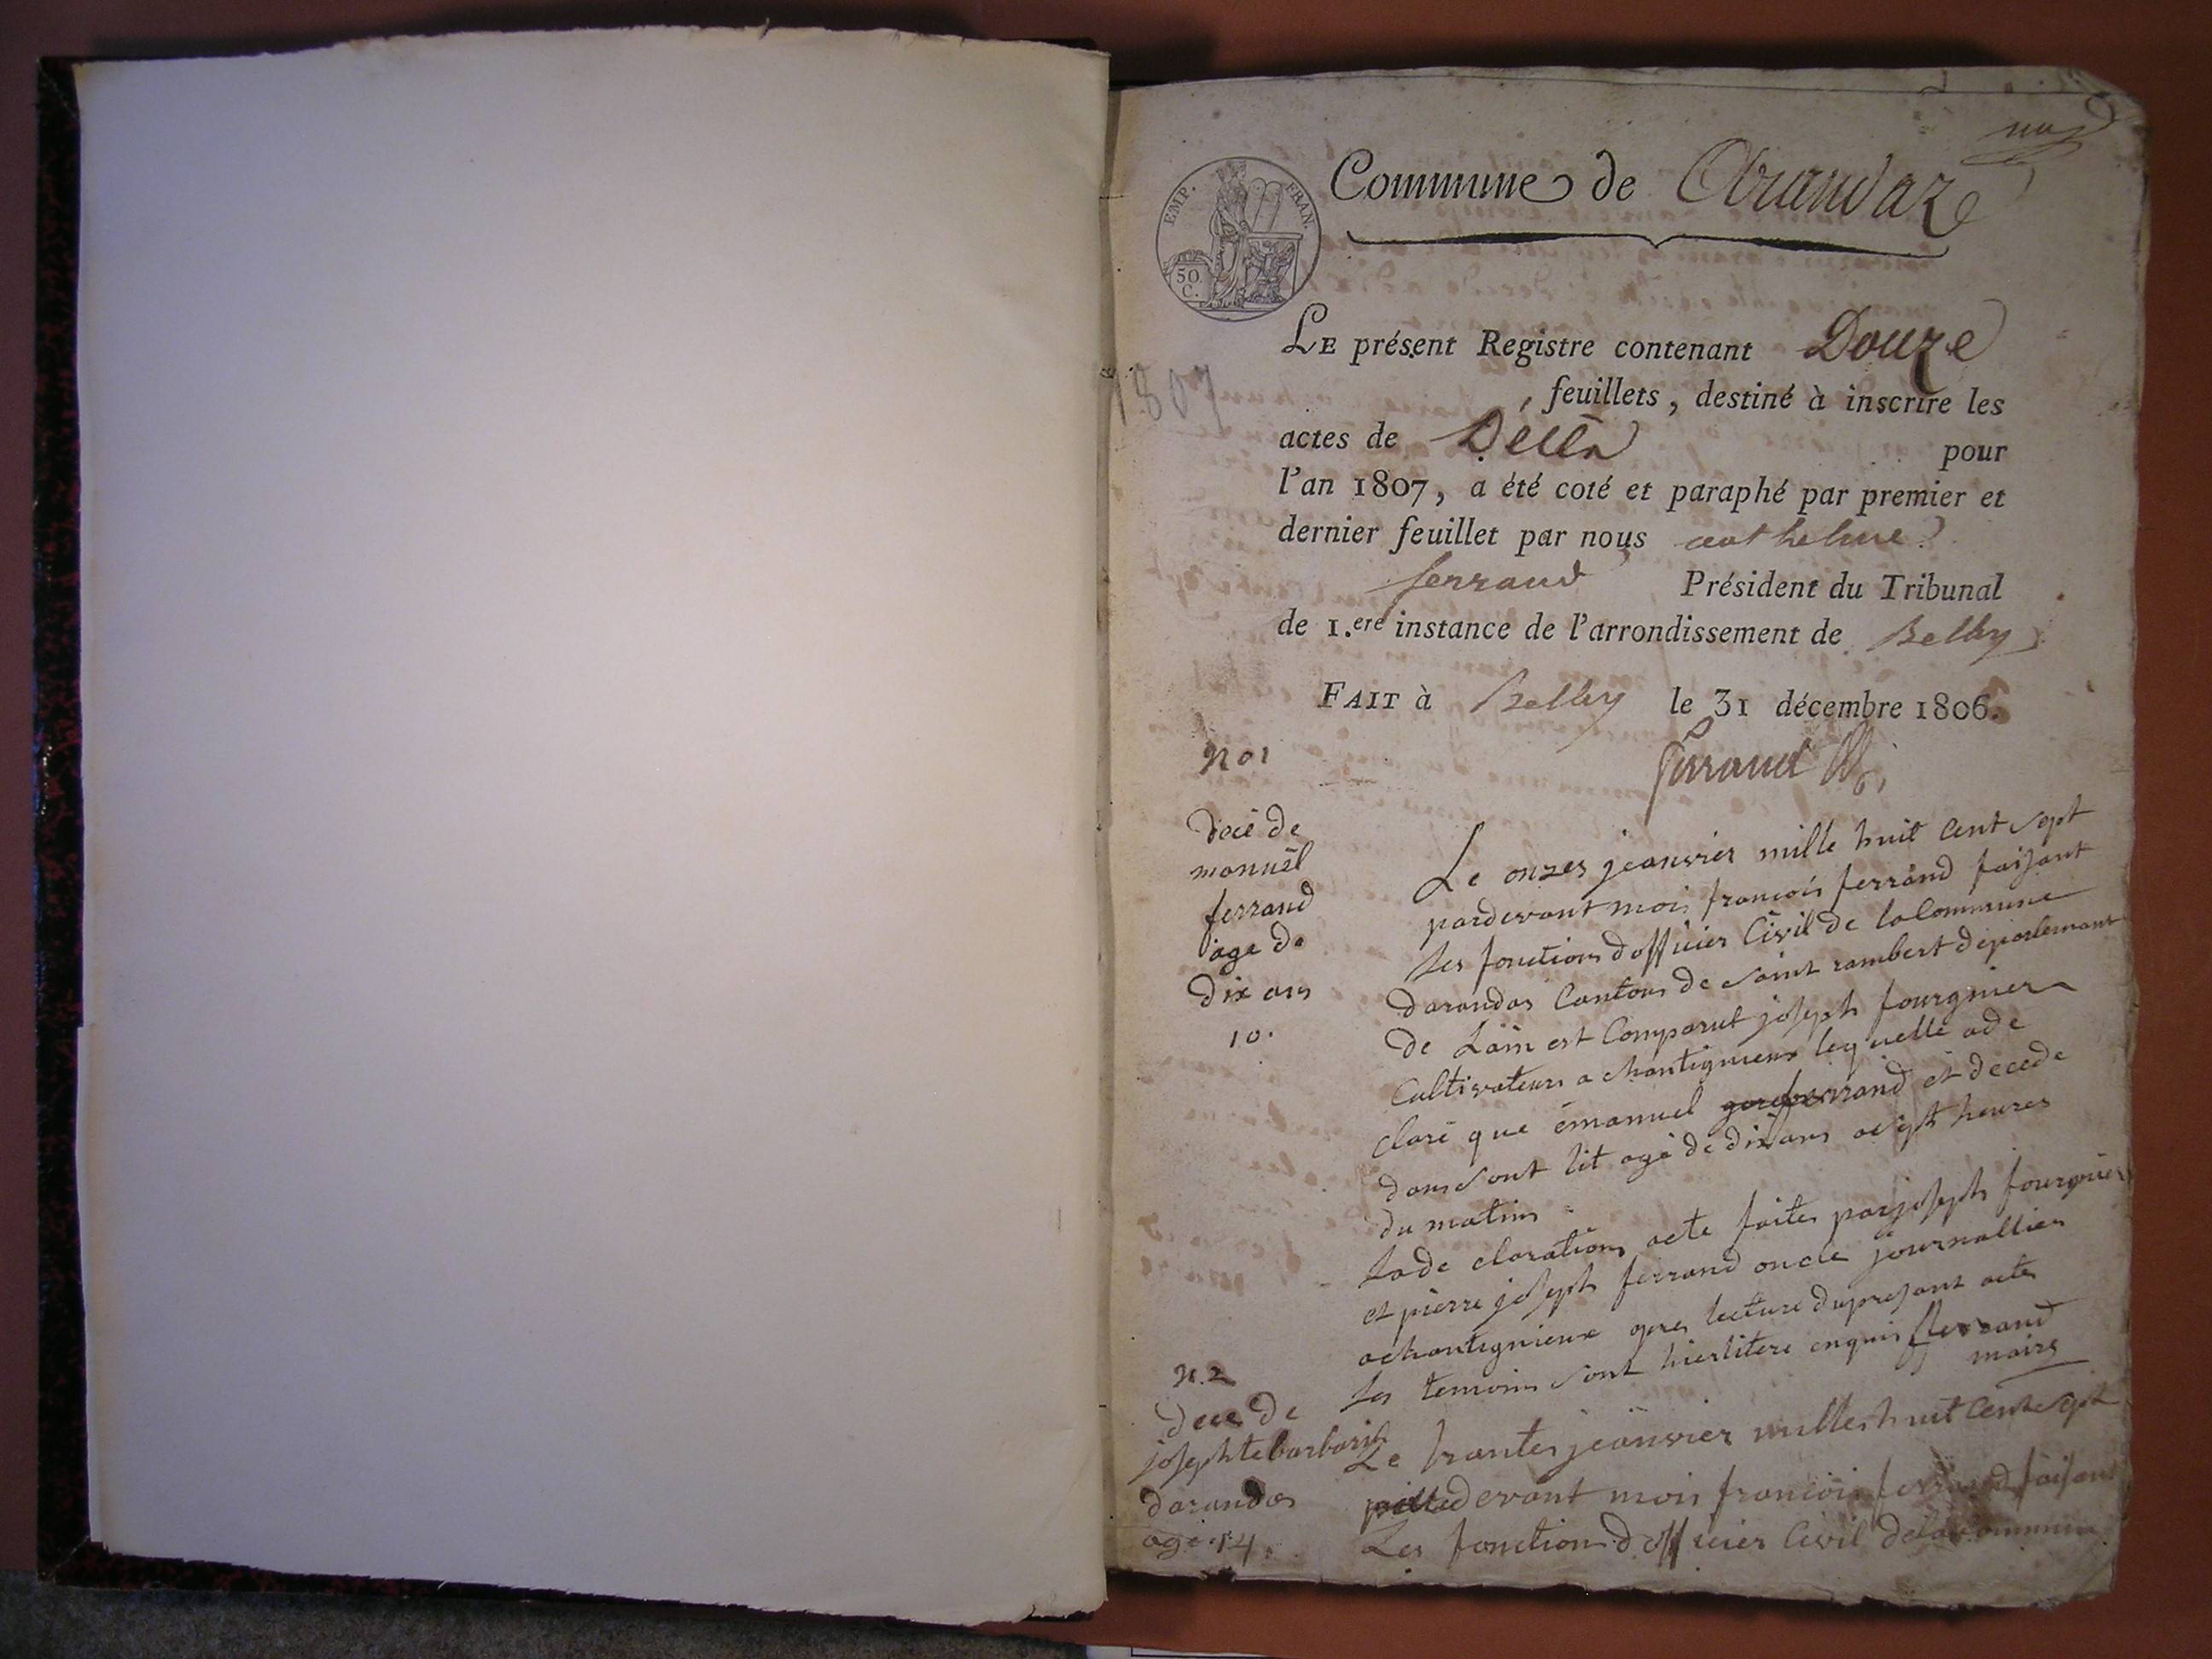 une
Commune de Arandaz
EMP. FRAN.
50
C.
LE présent Registre contenant Douze
feuillets, destiné à inscrire les
1807
actes de Décès pour
l'an 1807, a été coté et paraphé par premier et
dernier feuillet par nous anthelme
ferrand Président du Tribunal
de 1.ere instance de l'arrondissement de Belley
FAIT à Belley le 31 décembre 1806.
Ferrand
no 1
decé de
manuel
ferrand
age de
dix ans
10.
Le onzes jeanvier mille huit cent sept
pardevant mois francois ferrand faisant
les fonctions dofficier Civil de la Commune
darandas Cantons de saint rambert departemant
de Lain est Comparut joseph fourgnier
Cultivateurs a chantignieux lequelle a de
claré que emanuel ferrand et decede
dans sont lit agé de dix ans a sept heures
du matins
la de clarations acte faites par joseph fourgnier
et pierre joseph ferrand oncle journallier
a chantignieux apres lecture du presant actes
les temoins sont hierlitere enquis fferrand
maire
n. 2
dece de
josephte barbarin
darandas
age 14.
Le trantes jeanvier milles huit Cent sept
devant mois francois ferrand faisant
Les fonctions dofficier Civil de la Commune